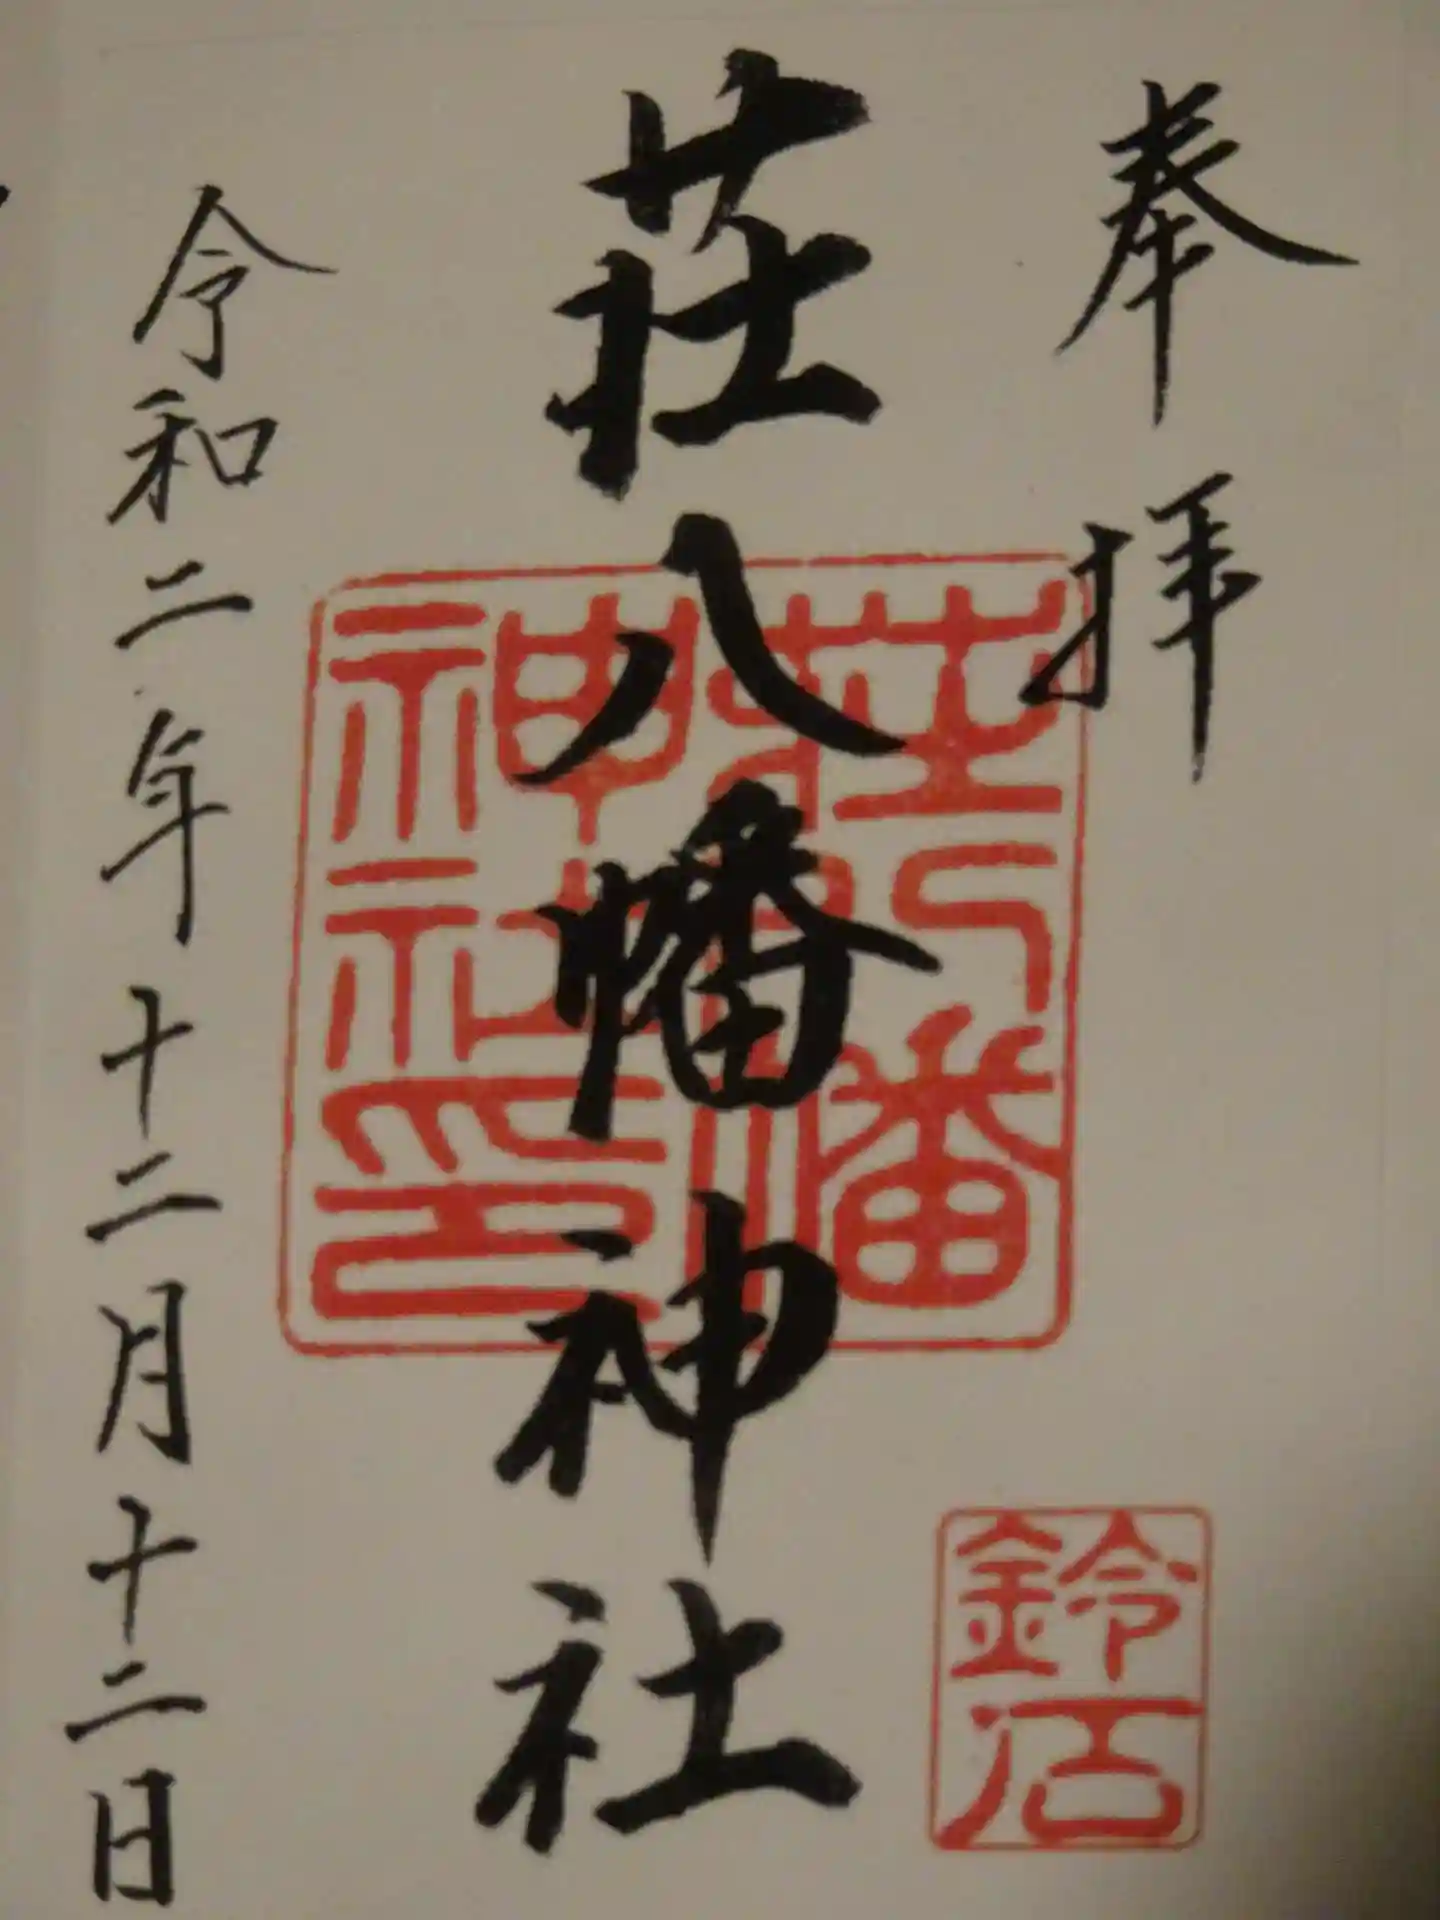 奉拝
荘八幡神社
荘八幡
神社印
鈴石
令和二年十二月十二日